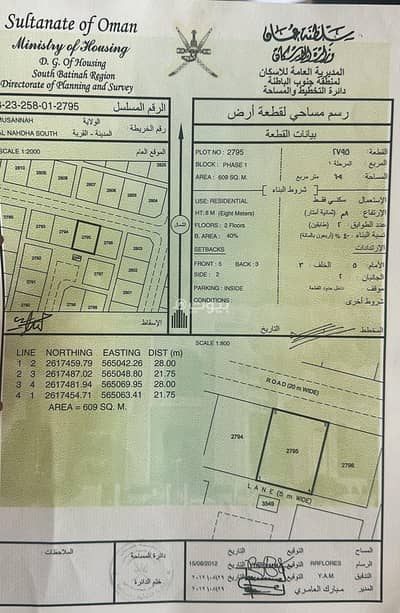 Sultanate of Oman
Ministry of Housing
D. G. Of Housing
South Batinah Region
Directorate of Planning and Survey
سلطنة عمان
وزارة الإسكان
المديرية العامة للاسكان
لمنطقة جنوب الباطنة
دائرة التخطيط والمساحة
3-23-258-01-2795 الرقم المسلسل
رسم مساحي لقطعة أرض
MUSANNAH الولاية
AL NAHDHA SOUTH المدينة - القرية
رقم الخريطة
بيانات القطعة
SCALE 1:2000 الموقع العام
PLOT NO : 2795 القطعة : ٢٧٩٥
BLOCK : PHASE 1 المربع : المرحلة ١
AREA : 609 SQ. M. المساحة : ٦٠٩ متر مربع
شروط البناء
USE: RESIDENTIAL الإستعمال : سكني فقط
HT: 8 M (Eight Meters) الإرتفاع : ٨م (ثمانية أمتار)
FLOORS : 2 Floors عدد الطوابق : ٢ (طابقين)
B. AREA : 40% نسبة البناء : ٤٠٪ (أربعون بالمائة)
SETBACKS الإرتدادات
FRONT : 5 BACK : 3 الأمام : ٥ الخلف : ٣
SIDE : 2 الجانبان : ٢
PARKING : INSIDE موقف : داخل حدود القطعة
CONDITIONS شروط أخرى
الشمال
2794
2795
2796
بيوت
الإسقاط
المخطط
التاريخ
SCALE 1:800
LINE NORTHING EASTING DIST (m)
1 2 2617459.79 565042.26 28.00
2 3 2617487.02 565048.80 21.75
3 4 2617481.94 565069.95 28.00
4 1 2617454.71 565063.41 21.75
AREA = 609 SQ. M.
ROAD (20 m WIDE)
2794
2795
2796
LANE (5 m WIDE)
3849
الملاحظات
دائرة المساحة
ختم الدائرة
المساح التوقيع التاريخ
الرسام RRFLORES التوقيع التاريخ 15/08/2012
التدقيق Y.A.M التوقيع التاريخ
المدير مبارك العامري التوقيع التاريخ